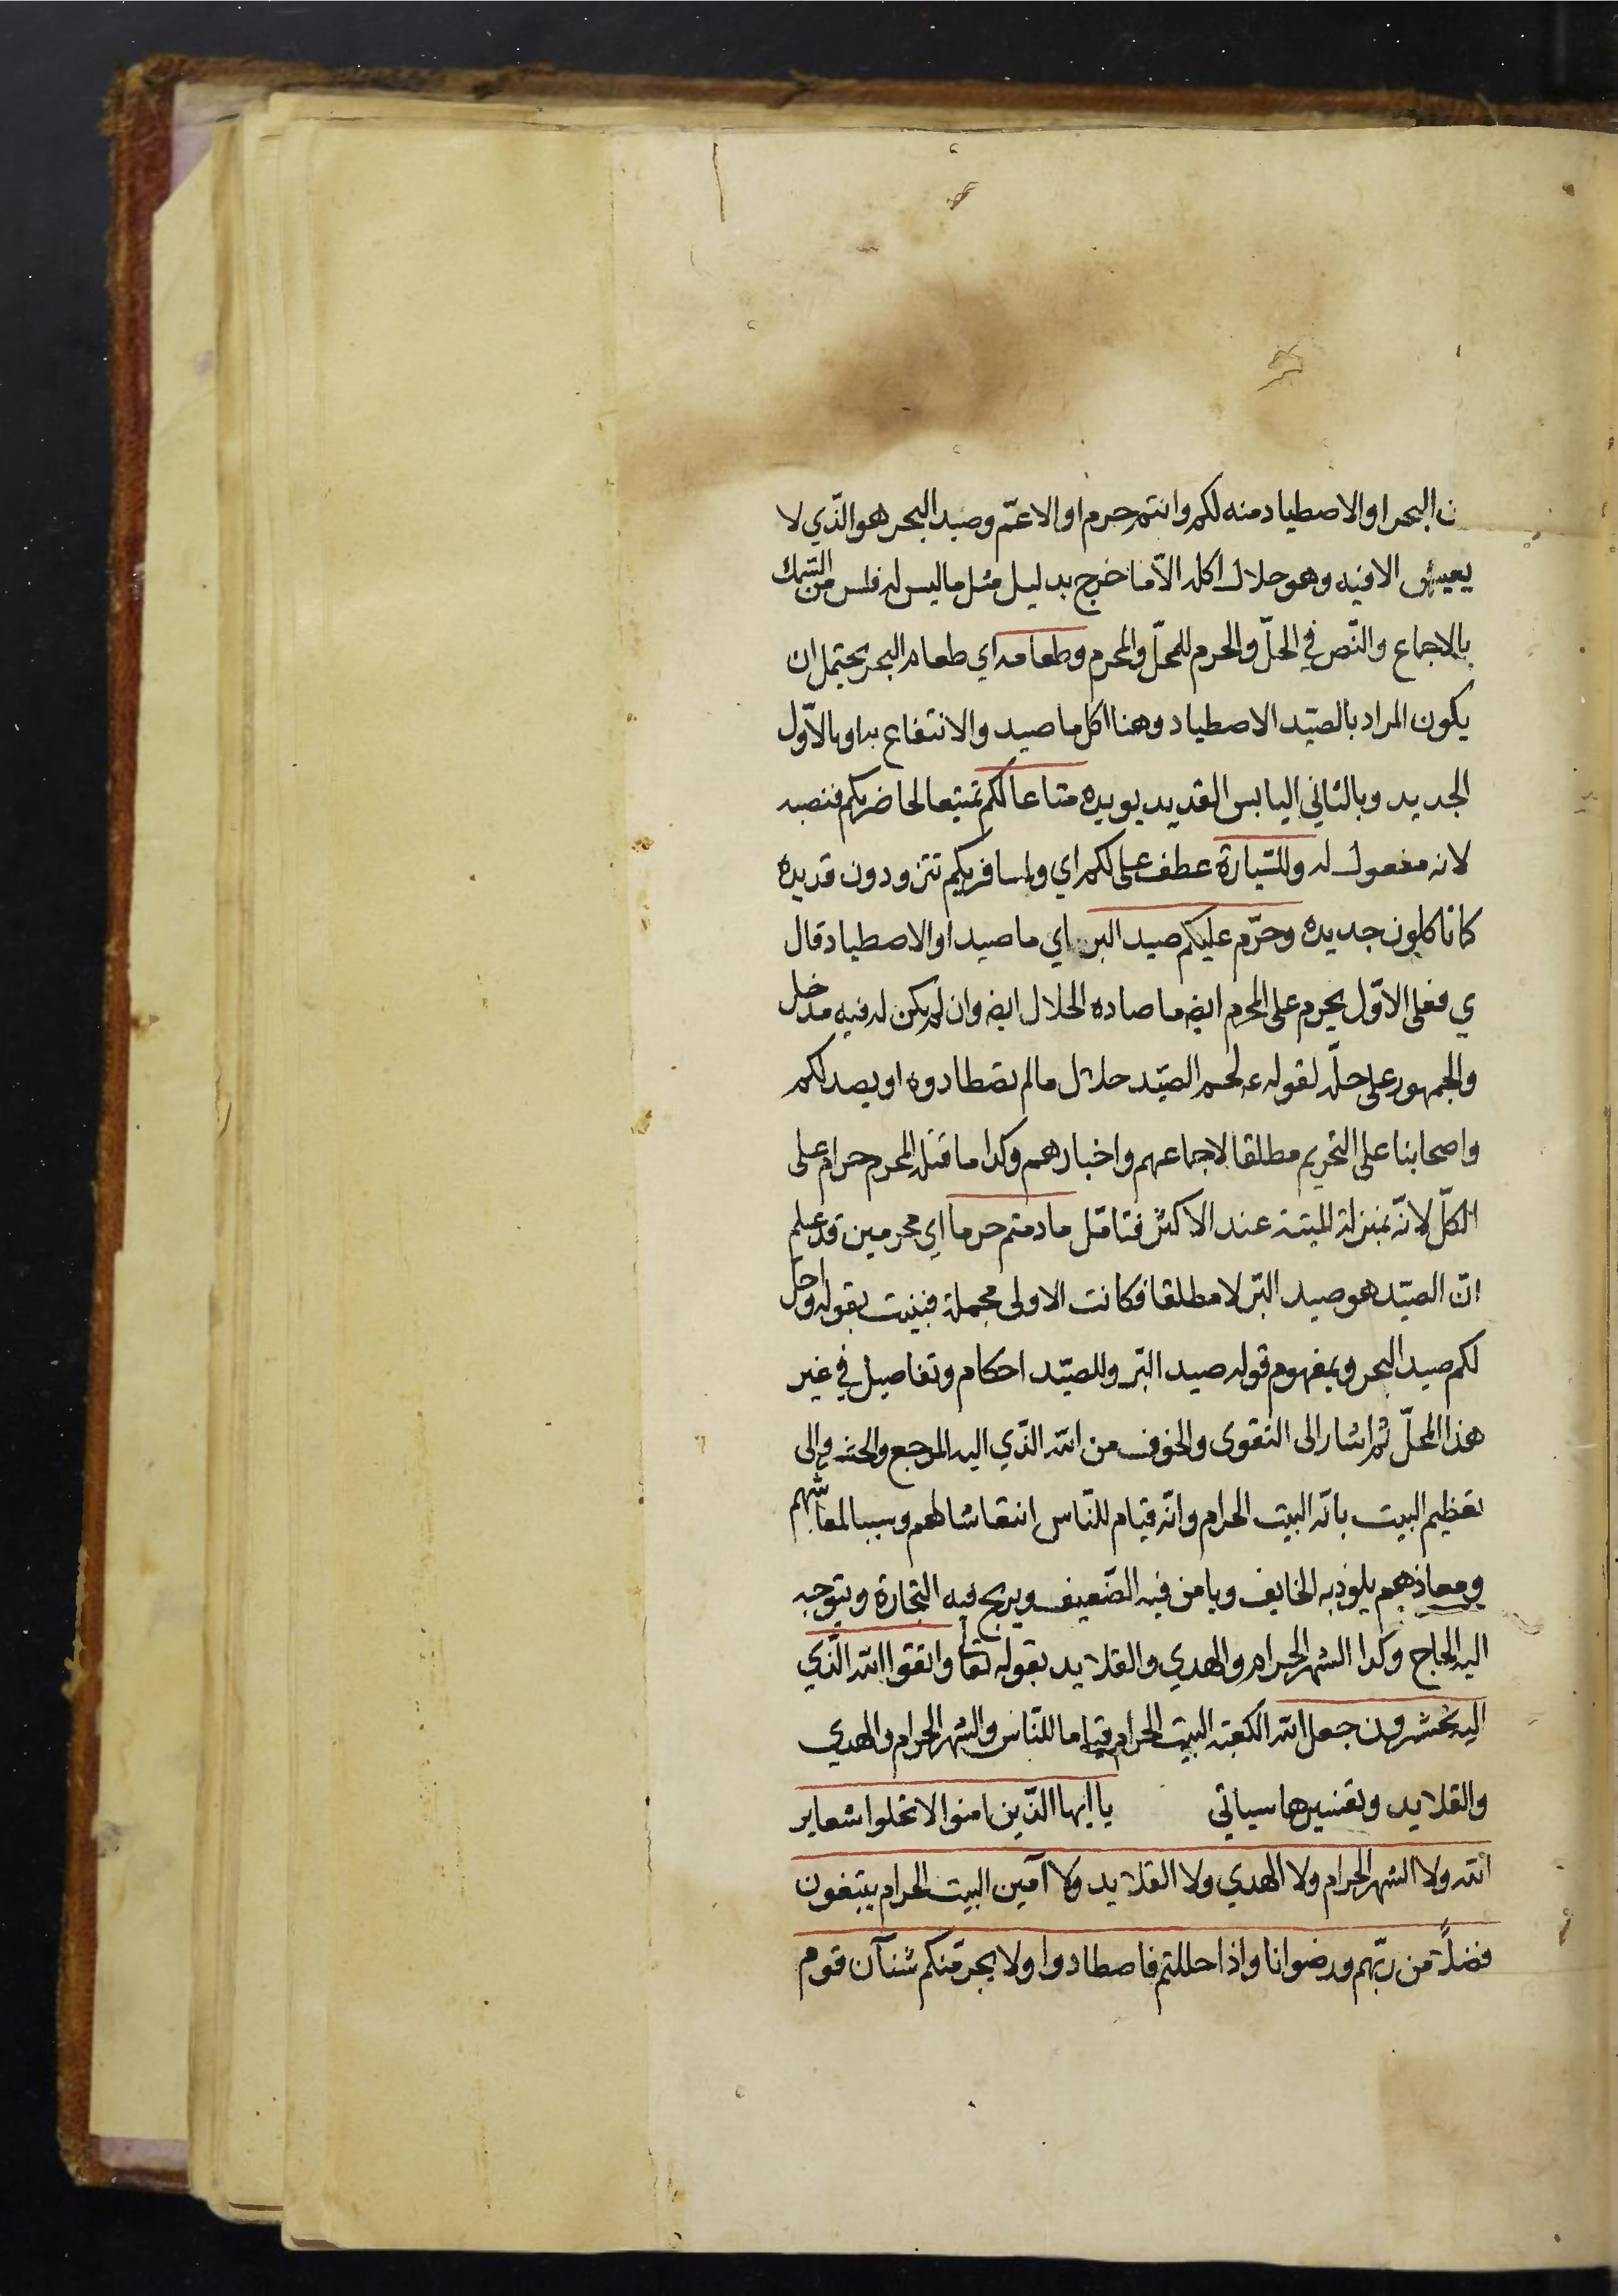 ن البحر او الاصطياد منه لكم وانتم حرم او الاعمّ وصيد البحر هو الّذي لا
يعيش الا فيه وهو حلال اكله الّا ما خرج بدليل مثل ما ليس له فلس من السّمك
بالاجماع والنّص في الحلّ والحرم للمحلّ والمحرم وطعامه اي طعام البحر يحتمل ان
يكون المراد بالصّيد الاصطياد وهنا اكل ما صيد والانتفاع به او بالاوّل
الجديد وبالثاني اليابس القديد يويده متاعا لكم تمتيعا لحاضريكم فنصبه
لانه مفعول له وللسّيارة عطف على لكم اي ولمسافريكم تتزودون قديده
كما تاكلون جديده وحرّم عليكم صيد البر اي ما صيد او الاصطياد قال
ي فعلى الاوّل يحرم على المحرم ايضه ما صاده الحلال ايضه وان لم يكن له فيه مدخل
والجمهور على حلّه لقوله ع لحم الصّيد حلال ما لم تصطادوه او يصد لكم
واصحابنا على التحريم مطلقا لاجماعهم واخبارهم وكذا ما قتله المحرم حرام على
الكلّ لانّه بمنزلة الميتة عند الاكثر فتامّل ما دمتم حرما اي محرمين قد علم
انّ الصّيد هو صيد البّر لا مطلقا فكانت الاولى مجملة فبينت بقوله واحلّ
لكم صيد البحر وبمفهوم قوله صيد البّر وللصّيد احكام وتفاصيل في غير
هذا المحلّ ثم اشار الى التقوى والخوف من الله الذّي اليه المرجع والى
تعظيم البيت بانّه البيت الحرام وانّه قيام للنّاس انتعاشا لهم وسببا لمعاشهم
ومعاذهم يلوذ به الخايف ويامن فيه الضّعيف ويربح فيه التجارة ويتوجه
اليه الحاج وكذا الشهر الحرام والهدي والقلايد بقوله تعا واتقوا الله الّذي
اليه تحشرون جعل الله الكعبة البيت الحرام قياما للنّاس والشهر الحرام والهدي
والقلايد وتفسيرها سياتي يا ايها الذّين امنوا لا تحلوا شعاير
الله ولا الشهر الحرام ولا الهدي ولا القلايد ولا آمين البيت الحرام يبتغون
فضلًا من ربّهم ورضوانا واذا حللتم فاصطادوا ولا يجرمّنكم شنآن قوم